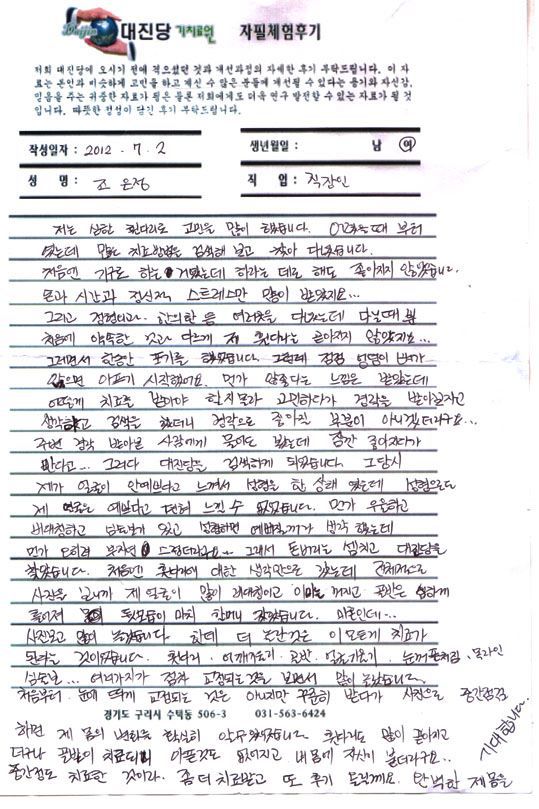 Daejin 대진당 기치료원 자필체험후기
저희 대진당에 오시기 전에 겪으셨던 것과 개선과정의 자세한 후기 부탁드립니다. 이 자
료는 본인과 비슷하게 고민을 하고 계신 수 많은 분들에게 개선될 수 있다는 용기와 자신감,
믿음을 주는 귀중한 자료가 됨은 물론 저희에게도 더욱 연구 발전할 수 있는 자료가 될 것
입니다. 따뜻한 정성이 담긴 후기 부탁드립니다.
작성일자 : 2012 . 7 . 2
생년월일 : 남 여
성 명 : 조은정
직 업 : 직장인
저는 심한 휜다리로 고민을 많이 했습니다. 때 부터
많은 치료방법을 검색해 보고 찾아 다녔습니다.
처음엔 기구로 하는 하라는 데로 해도 좋아지지 않았습니다.
돈과 시간과 정신적 스트레스만 많이 받았지요...
그리고 한의원 등 여러곳을 다녔는데
처음에 약속한 것과 다르게 제 휜다리는 곧아지지 않았지요...
그러면서 한동안 포기를 했었습니다. 그런데 점점
아프기 시작했어요. 먼가 안좋다는 느낌은 받았는데
어떻게 치료를 받아야 할지 몰라 고민하다가 경락을 받아볼라고
검색을 했더니 경락으로 좋아질 부분이 아니겠더라구요...
주변 경락 받아본 사람에게 물어도 봤는데 잠깐 좋아지다가
만다고... 그러다 대진당을 검색하게 되었습니다. 그당시
제가 얼굴이 안예쁘다고 느껴서 성형을 한 상태 였는데 성형으로도
제 얼굴은 예쁘다고 전혀 느낄 수 없었습니다. 먼가 우울하고
비대칭하고 성형하면 예뻐질까가 생각 했는데
먼가 오히려 부자연 그래서 돈버리는 셈치고 대진당을
찾았습니다. 처음엔 휜다리에 대한 생각만으로 갔는데 전체적으로
사진을 보니까 제 얼굴이 많이 비대칭이고 골반은 심하게
틀어져 뒷모습이 마치 할머니 같았습니다. 미혼인데...
사진보고 많이 놀랐습니다. 한데 더 놀란것은 이 모든게 치료가
된다는 것이었습니다. 휜다리, 어깨, 골반, 얼굴, 눈꺼풀처짐, 목라인
여러가지가 점차 교정되는것을 보면서 많이 놀랐습니다.
처음부터 눈에 띄게 교정되는 것은 아니지만 꾸준히 받다가 사진으로 중간점검
경기도 구리시 수택동 506-3 031-563-6424
하면 제 몸의 변화를 확실히 알수 있었습니다. 휜다리도 많이 곧아지고
더구나 골반이 치료되니 아픈것도 없어지고 내 몸에 자신이 붙더라구요..
중간정도 치료한 것이라. 좀 더 치료받고 또 후기 올릴께요. 완벽한 제몸을
기대합니다.